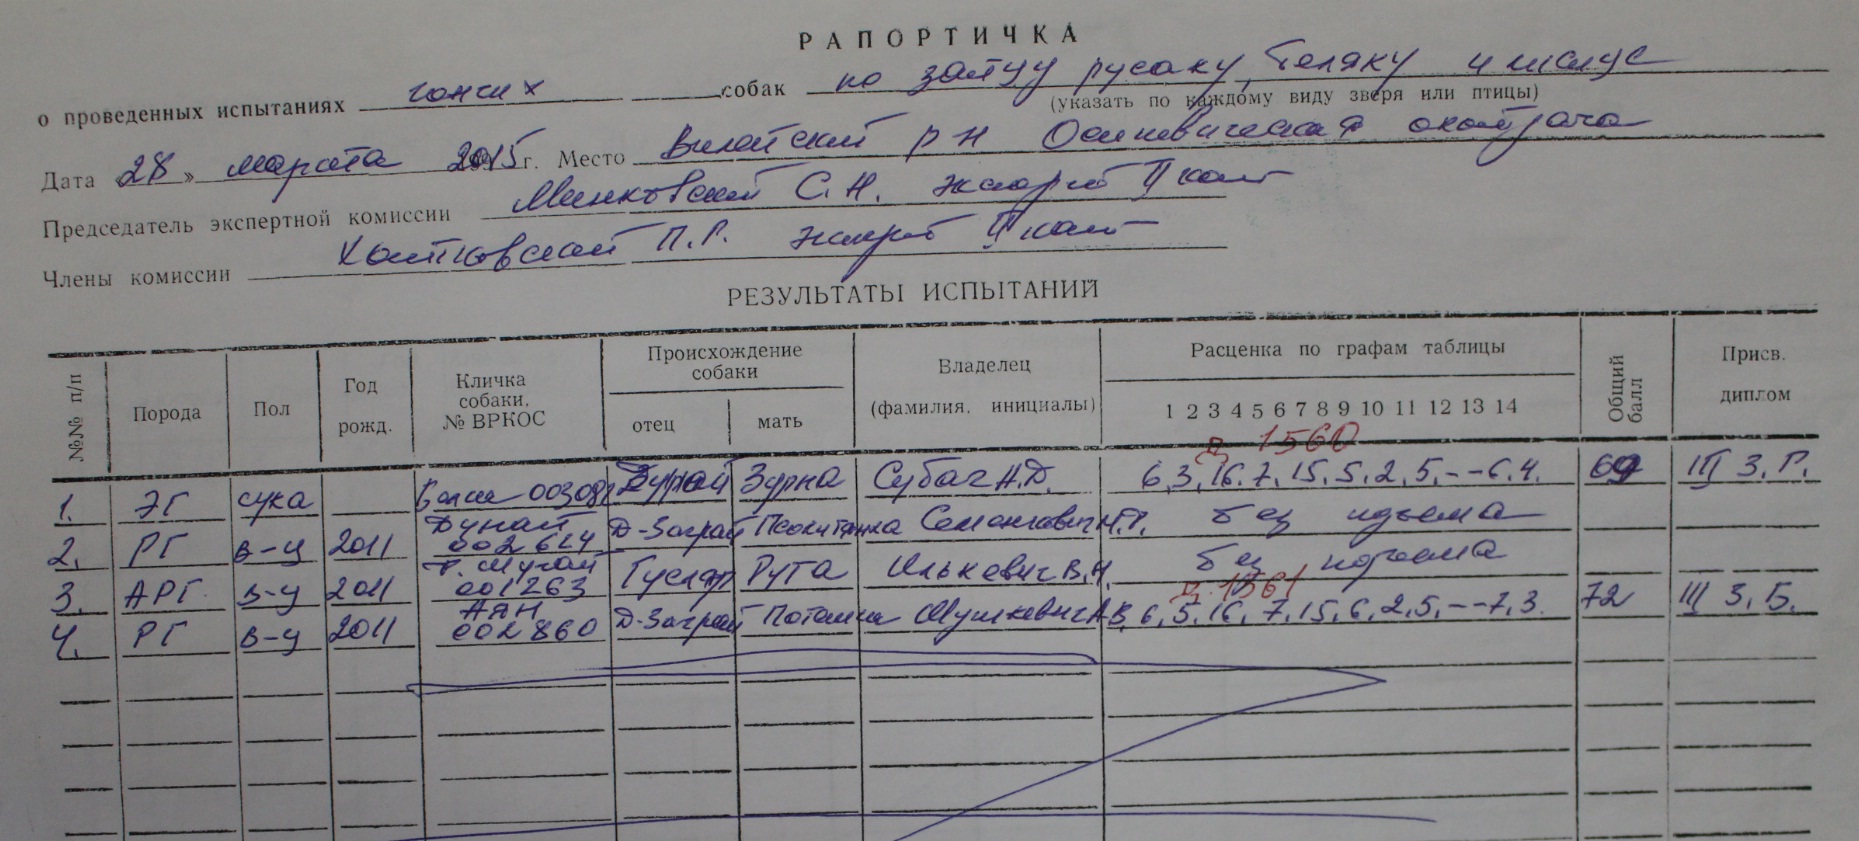 РАПОРТИЧКА
о проведенных испытаниях гончих собак по зайцу русаку, беляку и
(указать по каждому виду зверя или птицы)
Дата 28 » марта 2015 г. Место Вилейский р-н
Председатель экспертной комиссии Минковский С.Н. эксперт II кат
Члены комиссии П.Р. эксперт II кат
РЕЗУЛЬТАТЫ ИСПЫТАНИЙ
№№ п/п Порода Пол Год рожд. Кличка собаки, № ВРКОС Происхождение собаки отец мать Владелец (фамилия, инициалы) Расценка по графам таблицы 1 2 3 4 5 6 7 8 9 10 11 12 13 14 Общий балл Присв. диплом
Д 1560
1. ЭГ сука Зурна Субач А.Д. 6,3,16,7,15,5,2,5,--6.4. 69 III З.Р.
2. РГ в-ц 2011 Дунай 002624 Д-Заграй без подъема
3. АРГ в-ц 2011 001263 Гусляр Рута Илькевич В.Н. без подъема
Д. 1561
4. РГ в-ц 2011 Аян 002860 Д-Заграй Потешка Шушкевич А.В. 6,5,16,7,15,6,2,5,--7,3. 72 III З.Б.